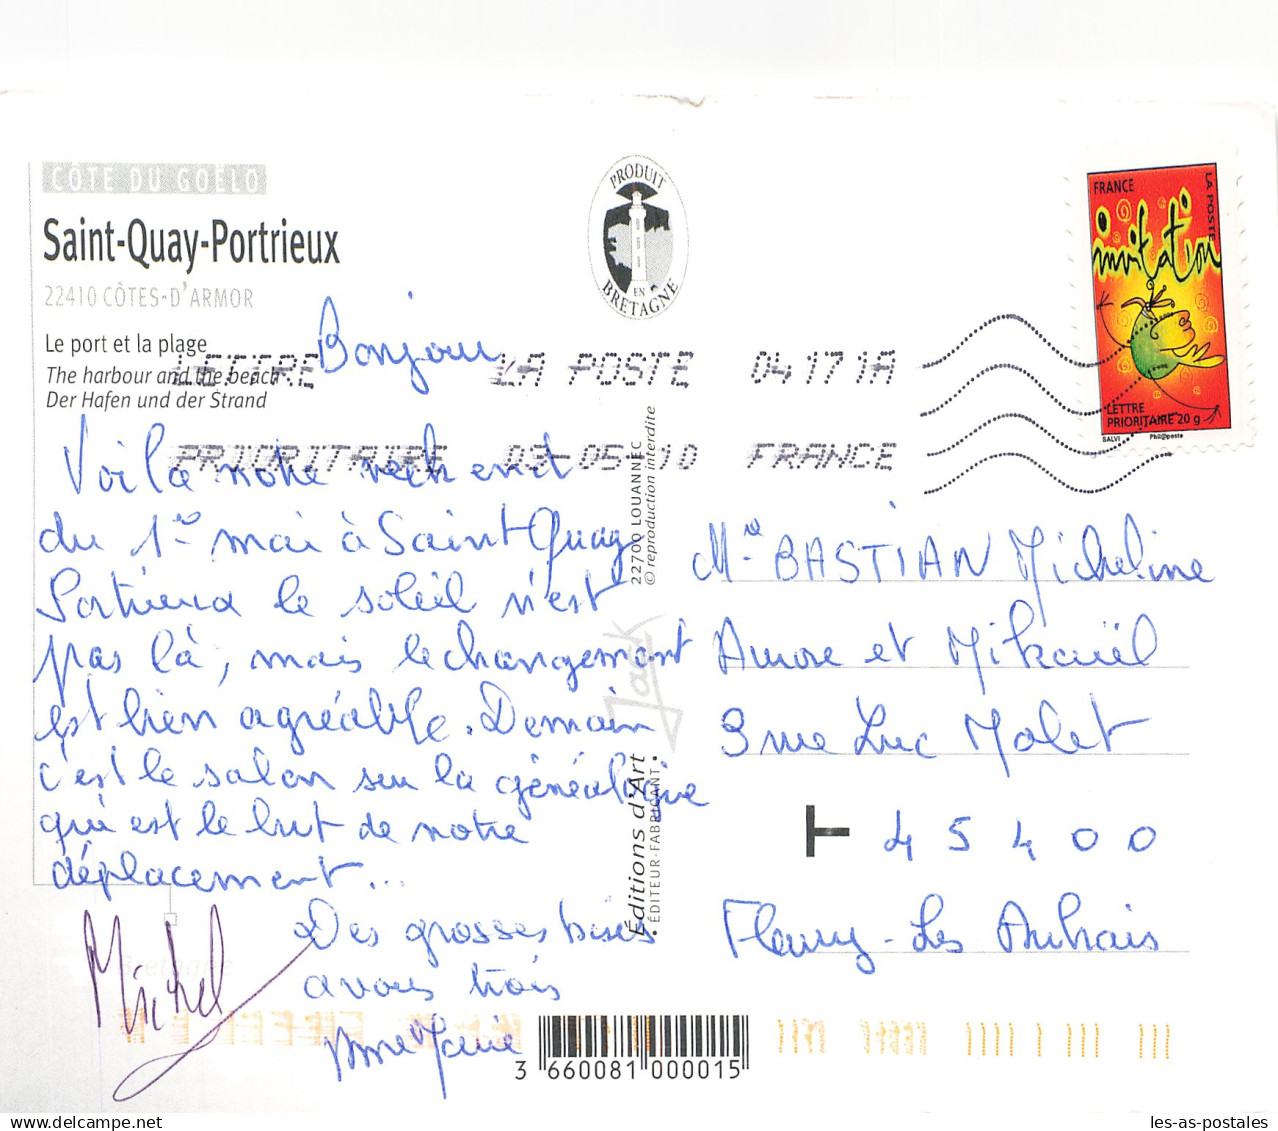 CÔTE DU GOËLO
Saint-Quay-Portrieux
22410 CÔTES-D'ARMOR
Le port et la plage
The harbour and the beach
Der Hafen und der Strand
PRODUIT
EN
BRETAGNE
FRANCE
LA POSTE
invitation
LETTRE
PRIORITAIRE 20 g
SALVI
Phil@poste
LETTRE LA POSTE 04171A
PRIORITAIRE 03-05-10 FRANCE
Bonjour
Voilà notre week end
du 1er mai à Saint Quay
Portrieux le soleil n'est
pas là, mais le changement
est bien agréable. Demain
c'est le salon sur la généalogie
qui est le but de notre
déplacement...
Des grosses bises
a vous trois
Anne Marie
Michel
22700 LOUANNEC
© reproduction interdite
Jack
Éditions d'Art
ÉDITEUR-FABRICANT
Bretagne
Me BASTIAN Micheline
et Mikaël
9 rue Luc Molet
T 45400
Fleury-Les Aubrais
3 660081 000015
les-as-postales